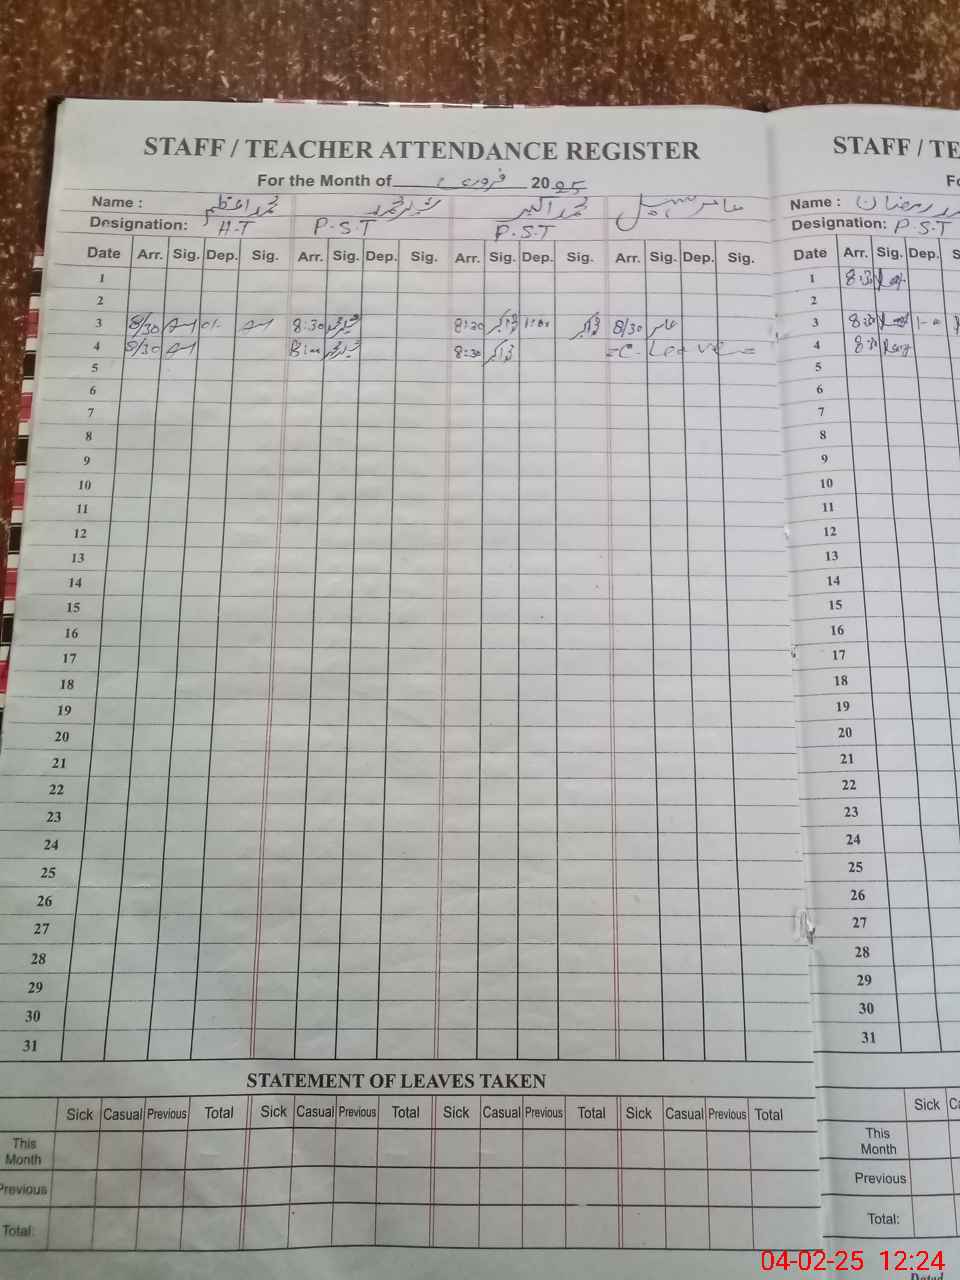 STAFF / TEACHER ATTENDANCE REGISTER STAFF / TE
For the Month of فروری 2025 Fo
Name : محمد اعظم محمد اکبر عامر سہیل Name : رمضان
Designation: H.T P.S.T P.S.T Designation: P.S.T
Date Arr. Sig. Dep. Sig. Arr. Sig. Dep. Sig. Arr. Sig. Dep. Sig. Arr. Sig. Dep. Sig. Date Arr. Sig. Dep. S
1 1 8:30
2 2
3 8/30 8:30 8:30 1:00 8/30 عامر 3 8:30 1-0
4 8/30 8:00 8:30 =C. Leave= 4 8:30
5 5
6 6
7 7
8 8
9 9
10 10
11 11
12 12
13 13
14 14
15 15
16 16
17 17
18 18
19 19
20 20
21 21
22 22
23 23
24 24
25 25
26 26
27 27
28 28
29 29
30 30
31 31
STATEMENT OF LEAVES TAKEN
Sick Casual Previous Total Sick Casual Previous Total Sick Casual Previous Total Sick Casual Previous Total Sick Ca
This Month This Month
Previous Previous
Total: Total:
04-02-25 12:24
Dated